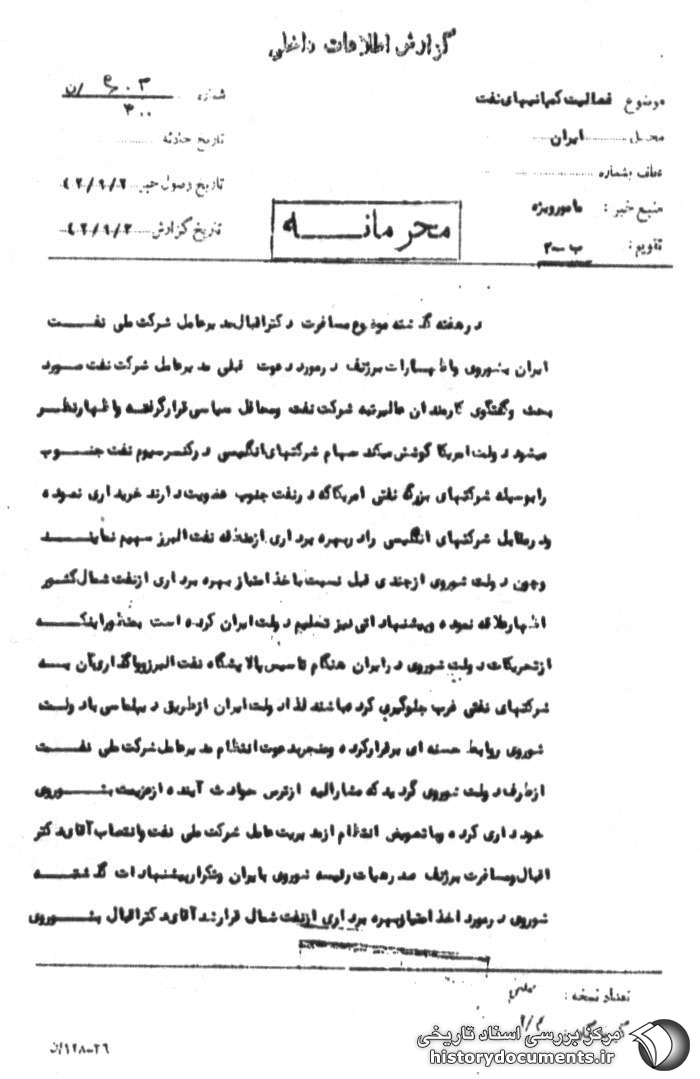 گزارش اطلاعات داخلی
موضوع فعالیت کمپانیهای نفت
شماره
۳۰۰
محل ایران
تاریخ حادثه
عطف بشماره
تاریخ وصول خبر ۴۲/۹/۲
منبع خبر : مامور ویژه
تاریخ گزارش ۴۲/۹/۲
تقویم : ب-۲
محرمانه
در هفته گذشته موضوع مسافرت دکتر اقبال مدیر عامل شرکت ملی نفت
ایران بشوروی و اظهارات برژنف در مورد دعوت قبلی مدیر عامل شرکت نفت مورد
بحث و گفتگوی کارمندان عالیرتبه شرکت نفت و محافل سیاسی قرار گرفته و اظهار نظر
میشود دولت امریکا کوشش میکند سهام شرکتهای انگلیسی در کنسرسیوم نفت جنوب
را بوسیله شرکتهای بزرگ نفتی امریکا که در نفت جنوب عضویت دارند خریداری نموده
و در مقابل شرکتهای انگلیسی را در بهره برداری از منطقه نفت البرز سهیم نمایند
و چون دولت شوروی از چندی قبل نسبت باخذ امتیاز بهره برداری از نفت شمال کشور
اظهار علاقه نموده و پیشنهاداتی نیز تسلیم دولت ایران کرده است بمنظور اینکه
از تحریکات دولت شوروی در ایران هنگام تاسیس پالایشگاه نفت البرز و واگذاری آن به
شرکتهای نفتی غرب جلوگیری کرده باشند لذا دولت ایران از طریق دیپلماسی با دولت
شوروی روابط حسنه ای برقرار کرده و منجر بدعوت انتظام مدیر عامل شرکت ملی نفت
از طرف دولت شوروی گردید که مشارالیه از ترس حوادث آینده از عزیمت بشوروی
خودداری کرده و با تعویض انتظام از مدیریت عامل شرکت ملی نفت و انتصاب آقای دکتر
اقبال و مسافرت برژنف صدر هیات رئیسه شوروی بایران و تکرار پیشنهادات گذشته
شوروی در مورد اخذ امتیاز بهره برداری از نفت شمال قرار شد آقای دکتر اقبال بشوروی
تعداد نسخه :
۲۶-۱۲۸/ن
مرکز بررسی اسناد تاریخی
historydocuments.ir